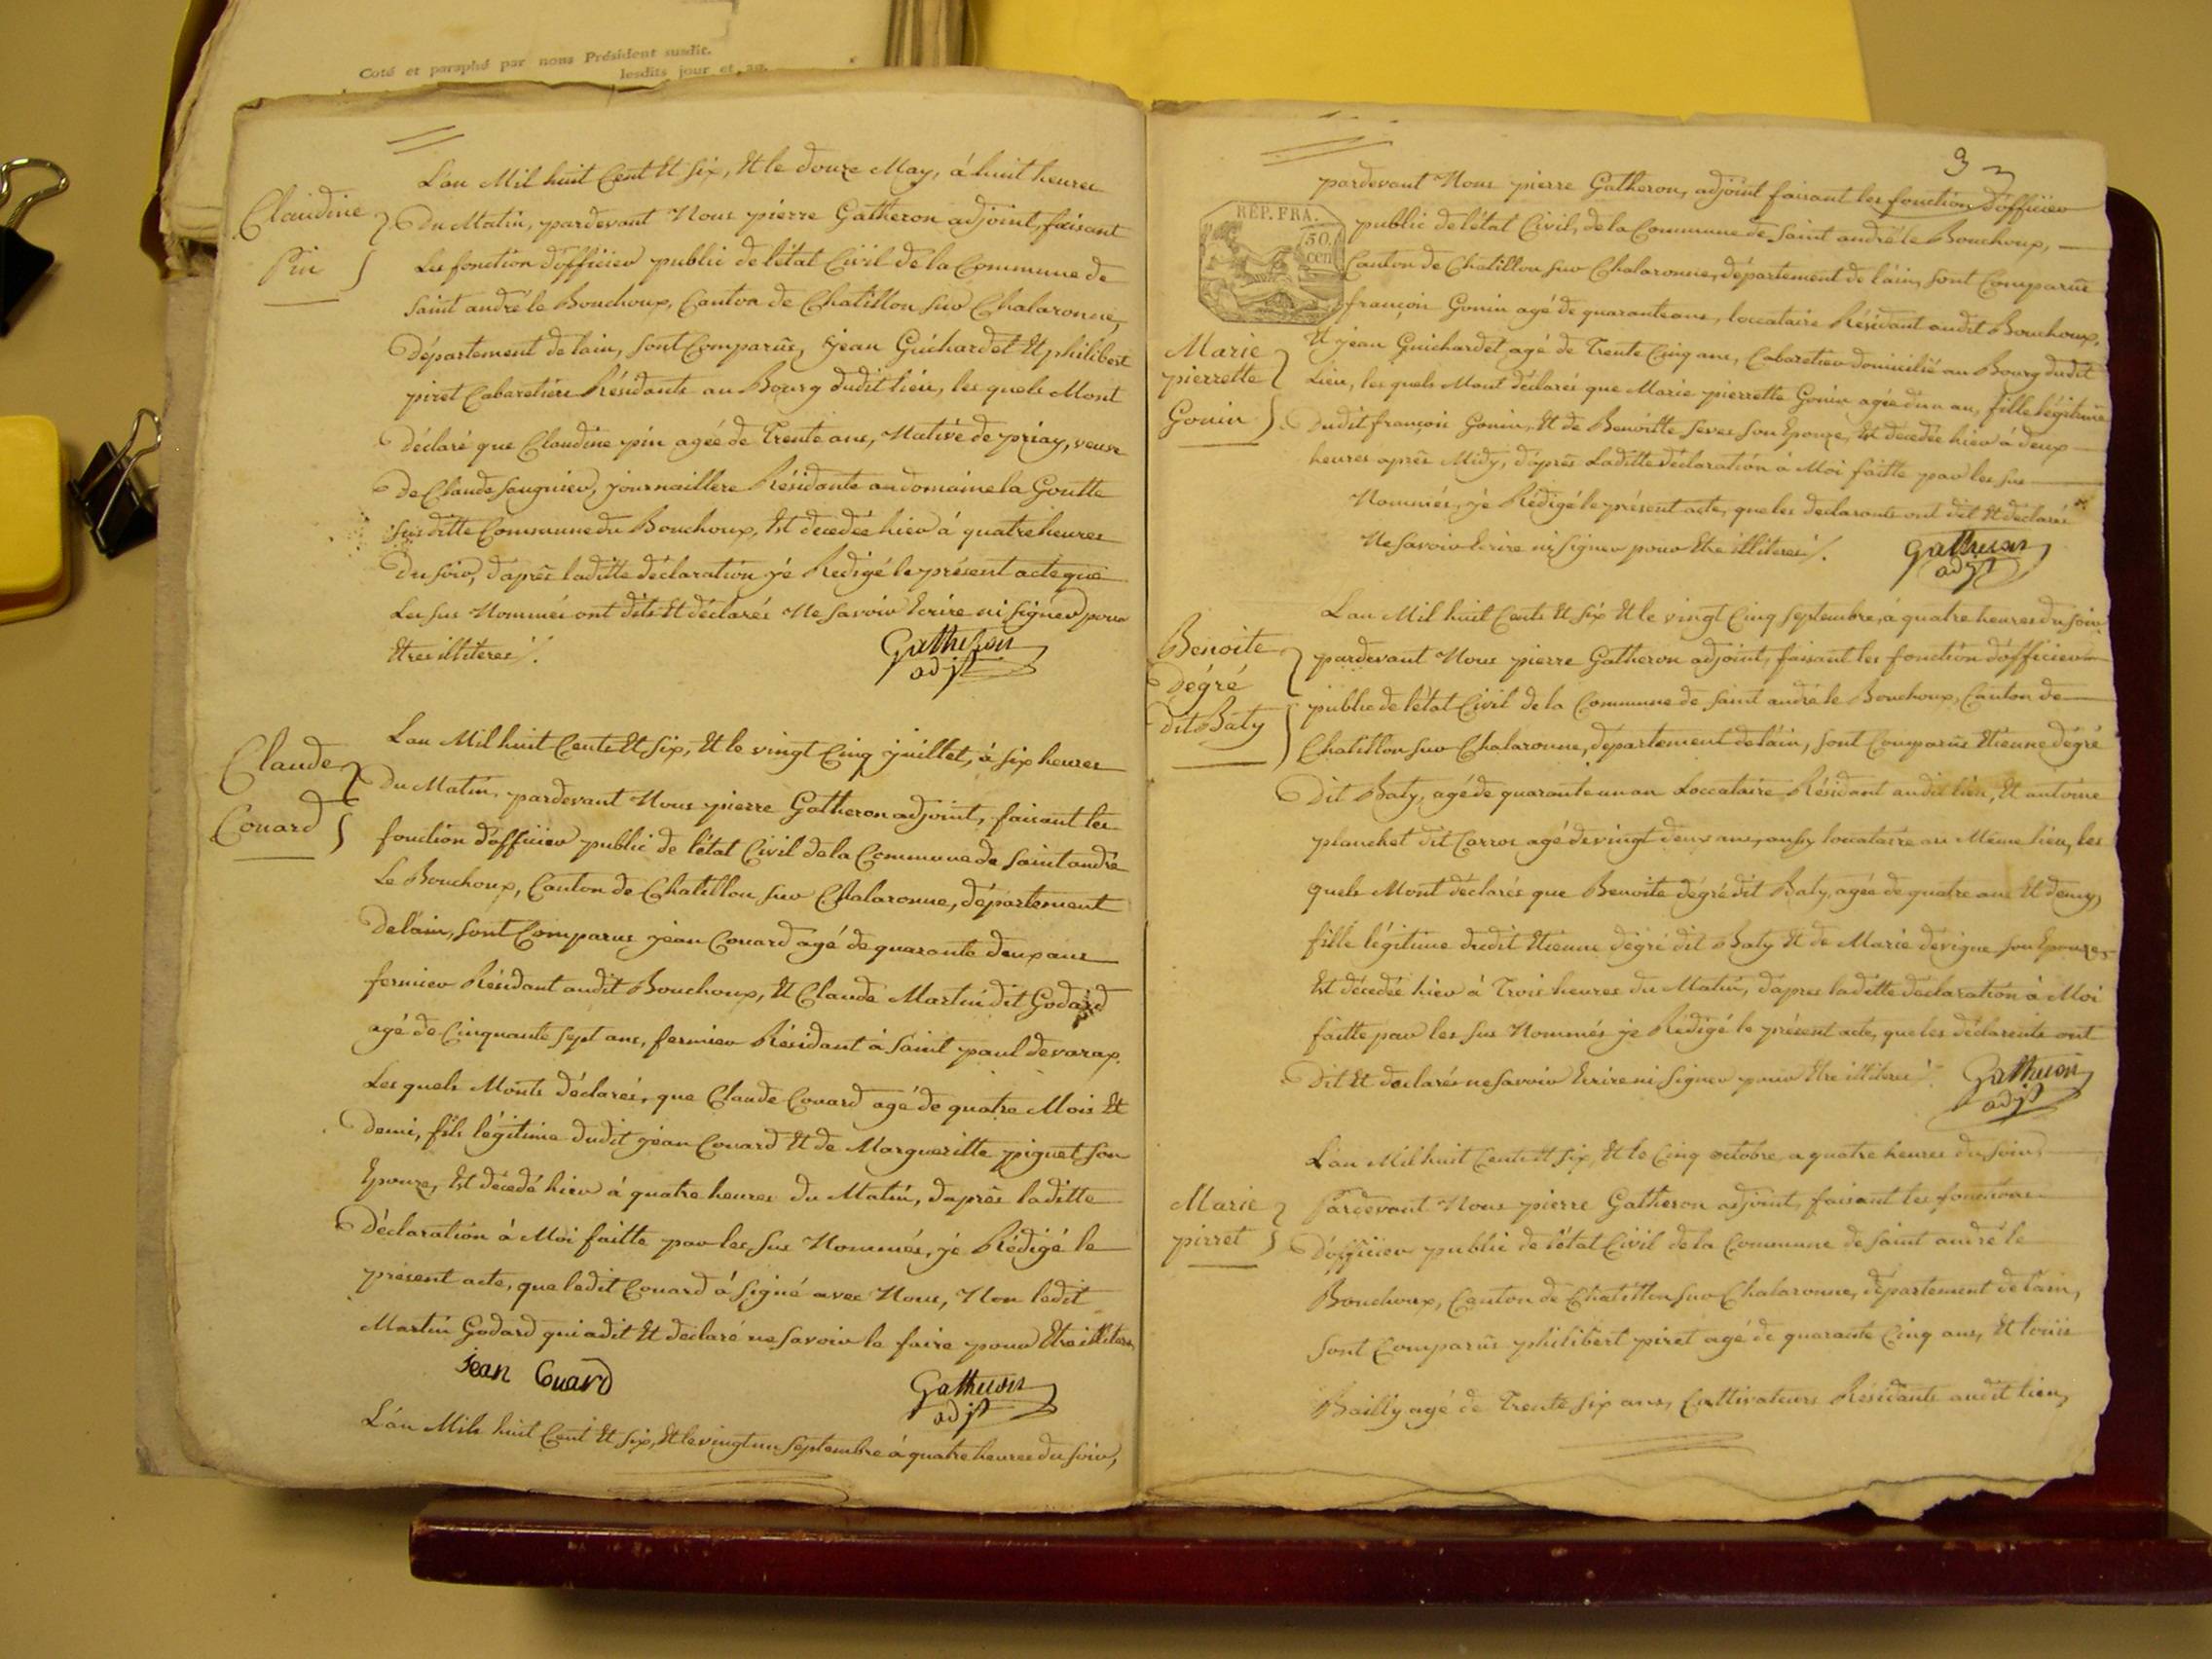 Coté et paraphé par nous Président susdit.
lesdits jour et an.
L'an Mil huit Cent Et six, Et le douze May, á huit heures
Claudine
Pin
Du Matin, pardevant Nous pierre Gatheron adjoint, faisant
Les fonction d'officier public de létat Civil de la Commune de
Saint andré le Bouchoux, Canton de Chatillon sur Chalaronne,
Département de lain, sont Comparûs, jean Guichardet Et philibert
piret Cabaretiers Résidants au Bourg dudit lieu, les quels Mont
Déclaré que Claudine pin agée de Trente ans, Native de priay, veuve
De Claude Seugnier, journaillere Résidante au domaine la Goutte
Susditte Commune du Bouchoux, Est decedée hier à quatre heures
Du Soir, daprês laditte déclaration j'é Redigé le présent acte que
Les sus Nommés ont dits Et déclarés Ne savoir Ecrire ni signer pour
Etres illiteres /.
Gatheron
adjt
Claude
Couard
L'an Mil huit Cents Et six, Et le vingt Cinq juillet, à six heures
Du Matin, pardevant Nous pierre Gatheron adjoint, faisant les
fonction d'officier public de létat Civil dela Commune de Saint andré
Le Bouchoux, Canton de Chatillon sur Chalaronne, département
Delain, sont Comparus jean Couard agé de quarante deux ans
fermier Résidant audit Bouchoux, Et Claude Martin dit Godard
agé de Cinquante sept ans, fermier Résidant à Saint paul devarax
Les quels Monts déclarés, que Claude Couard agé de quatre Mois Et
Demi, fils légitime dudit jean Couard Et de Margueritte piguet son
Epouze, Est décedé hier á quatre heures du Matin, daprês laditte
Déclaration à Moi faitte par les sus Nommés, jé Rédigé le
présent acte, que ledit Couard á signé avec Nous, Non ledit
Martin Godard qui a dit Et declaré ne savoir le faire pour Etre illitere
jean Couard
Gatheron
adjt
L'an Mils huit Cent Et six, Et le vingt un Septembre à quatre heures du soir,
3
pardevant Nous pierre Gatheron, adjoint faisant les fonction d'officier
REP. FRA.
50.
cen
public de létat Civil, de la Commune de Saint andré le Bouchoux,
Canton de Chatillon sur Chalaronne, département de lain, sont Comparûs
françois Gonin agé de quarante ans, loccataire Résidant audit Bouchoux,
Marie
pierrette
Gonin
Et jean Guichardet agé de Trente Cinq ans, Cabaretier domicilié au Bourg dudit
Lieu, les quels Mont déclarés que Marie pierrette Gonin agée dun an, fille légitime
Dudit françois Gonin, Et de Benoitte Seves son Epouze, Est decedée hier à deux
heures aprês Midy, d'aprês Laditte déclaration à Moi faitte par les sus
Nommés, j'é Rédigé le présent acte, que les declarants ont dit Et declarés
Ne savoir Ecrire ni signer pour Etre illiteres /.
Gatheron
adjt
L'an Mil huit Cents Et six Et le vingt Cinq septembre, à quatre heures du soir
Benoite
Dégré
dit Baty
pardevant Nous pierre Gatheron adjoint, faisant les fonction d'officier
public de létat Civil de la Commune de Saint andré le Bouchoux, Canton de
Chatillon sur Chalaronne, département de lain, sont Comparûs Etienne dégré
Dit Baty, agé de quarante un an Loccataire Résidant audit lieu, Et antoine
planchet dit Carros agé de vingt deux ans, aussy locataire au Même lieu, les
quels Mont déclarés que Benoite dégré dit Baty, agée de quatre ans Et demy,
fille légitime dudit Etienne dégré dit Baty Et de Marie devigne son Epouze
Est décedée hier à Trois heures du Matin, dapres laditte declaration à Moi
faitte par les sus Nommés je Rédigé le présent acte, que les déclarants ont
Dit Et declarés ne savoir Ecrire ni signer pour Etre illiteres /.
Gatheron
adjt
L'an Mil huit Cents Et six, Et le Cinq octobre, a quatre heures du soir,
Marie
pirret
Pardevant Nous pierre Gatheron adjoint, faisant les fonctions
D'officier public de l'état Civil de la Commune de Saint andré le
Bouchoux, Canton de Chatillon sur Chalaronne, département de lain,
Sont Comparûs philibert piret agé de quarante Cinq ans, Et louis
Bailly agé de Trente six ans, Cultivateurs Résidants audit lieu,